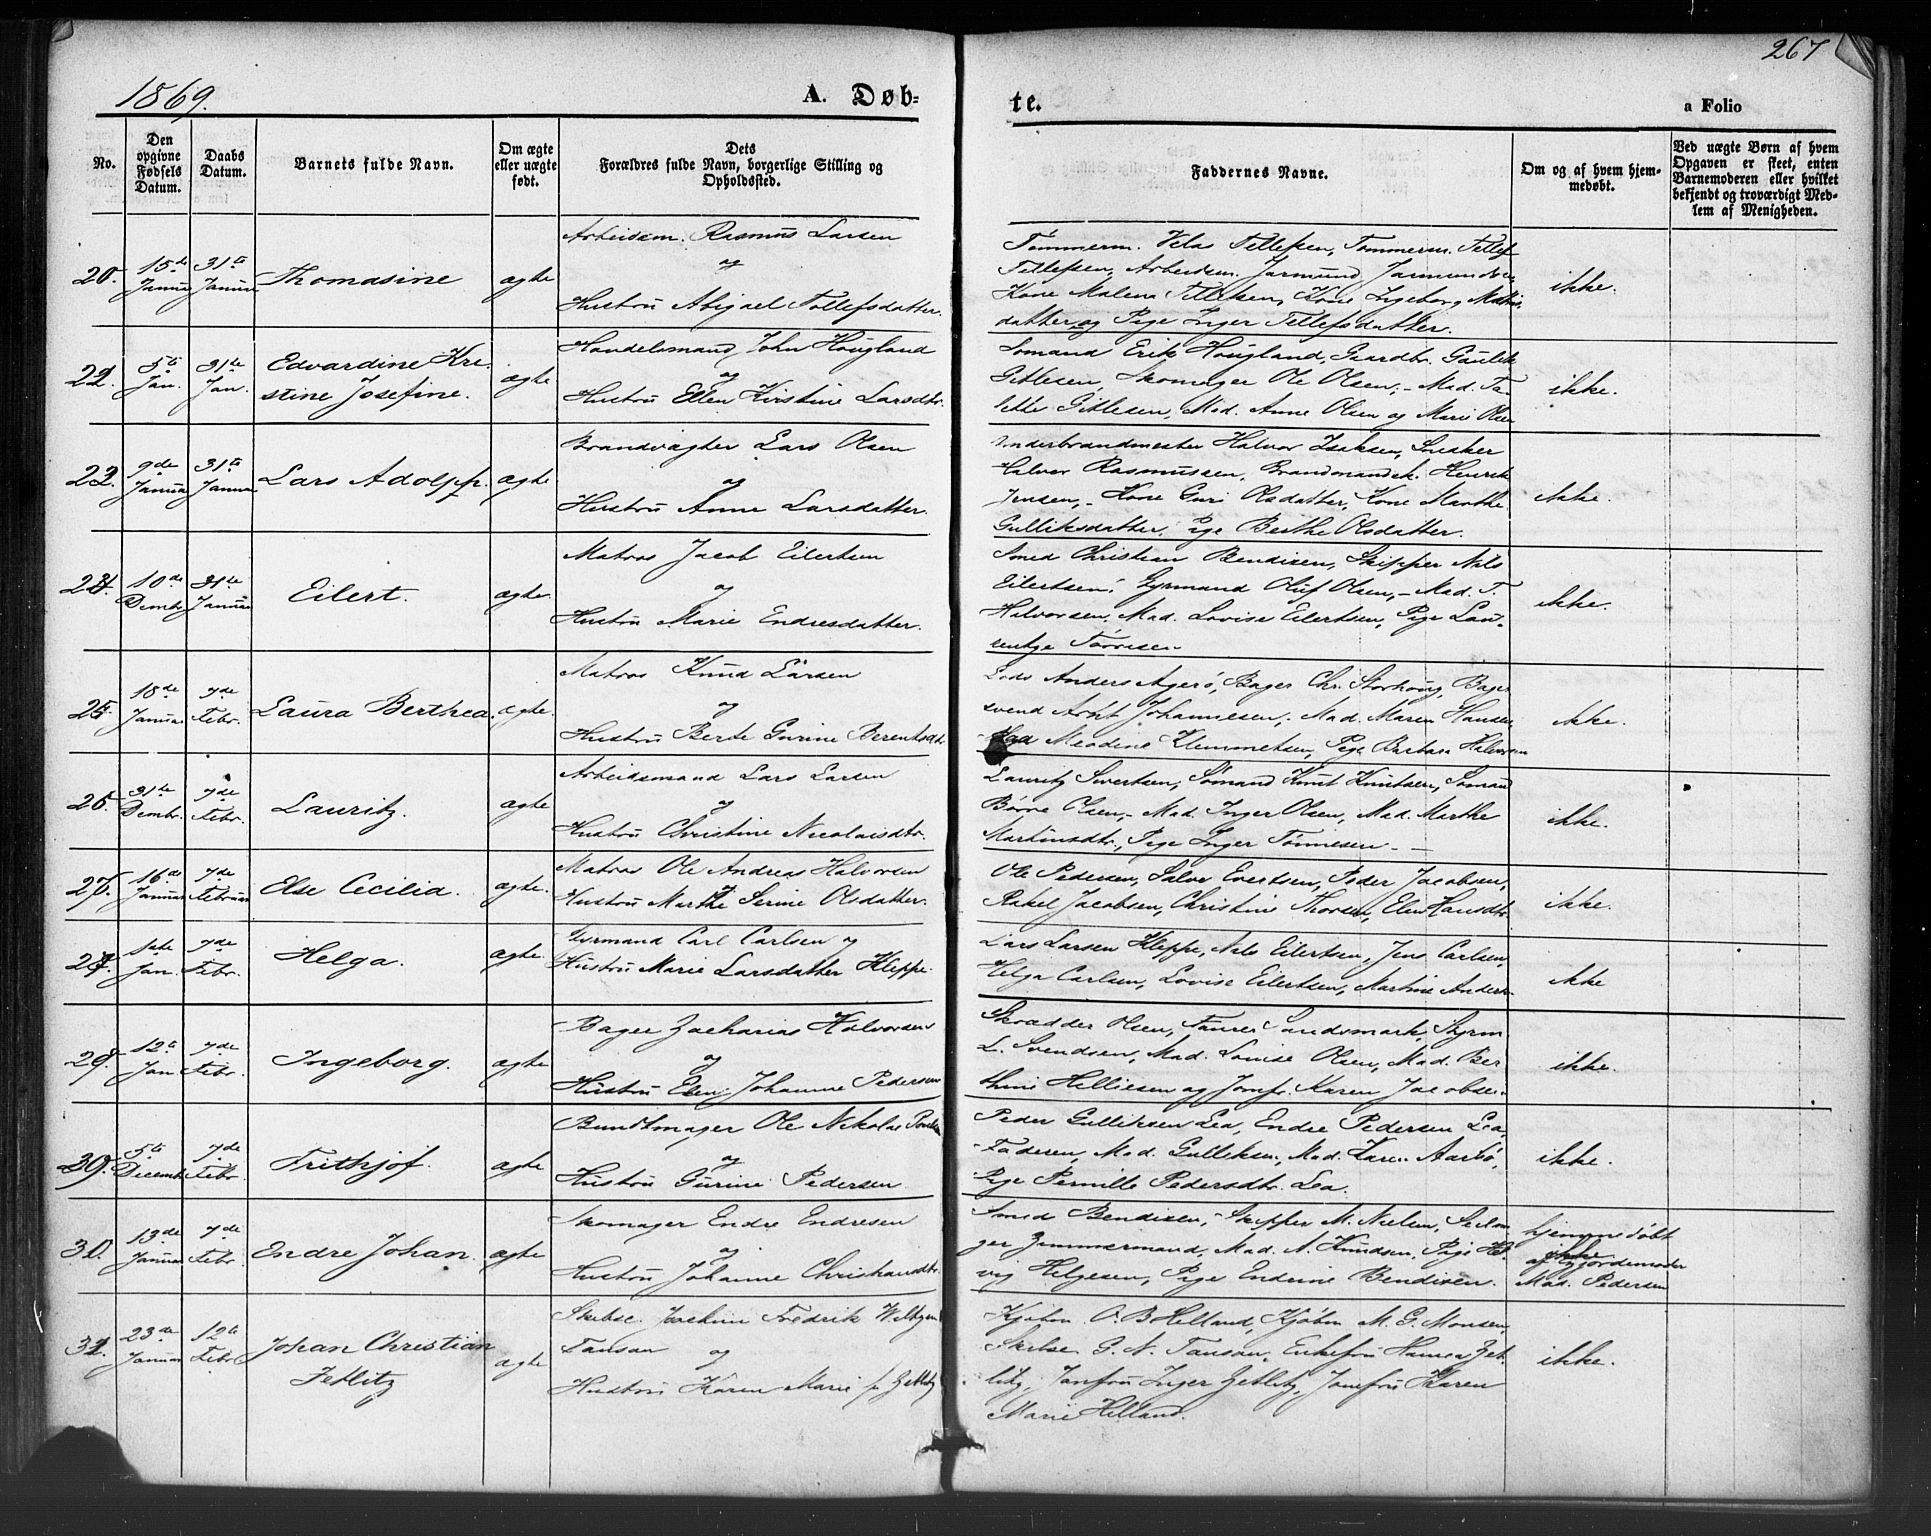 267
1869.
A. Døb=
te.
a Folio
No.
Den
opgivne
Fødsels
Datum.
Daabs
Datum.
Barnets fulde Navn.
Om ægte
eller uægte
født.
Dets
Forældres fulde Navn, borgerlige Stilling og
Opholdssted.
Faddernes Navne.
Om og af hvem hjem-
medøbt.
Ved uægte Børn af hvem
Opgaven er skeet, enten
Barnemoderen eller hvilket
bekjendt og troværdigt Med-
lem af Menigheden.
20.
15de
Januar
31te
Januar
Thomasine
ægte
Arbeidsm. Rasmus Larsen
og
Hustru Abigael Tollefsdatter.
Tømmerm. Velas Tellefsen, Tømmerm. Tellef
Tellefsen, Arbeidsm. Jarmund Jarmundsen
Kone Malena Tellefsen, Kone Ingeborg
datter og Pige Inger Tellefsdatter.
ikke.
22.
5te
Jan.
31te
Jan.
Edvardine Kri-
stine Josefine.
ægte
Handelsmand John Hougland
og
Hustru Ellen Kristine Larsdtr.
Sømand Erik Hougland, Gaardbr. Gaulik
Gitlesen, Skomager Ole Olsen,- Mad. Ta-
lette Gitlesen, Mad. Anne Olsen og Marie Olsen
ikke.
22.
9de
Januar
31te
Januar
Lars Adolph.
ægte
Brandvægter Lars Olsen
og
Hustru Anne Larsdatter.
Underbrandmester Halvor Isaksen, Snedker
Halvor Rasmussen, Brandmandsk. Henrik
Jensen,- Kone Guri Olsdatter, Kone Marthe
Gulliksdatter, Pige Berthe Olsdatter.
ikke.
10de
Dembr
31te
Januar
Eilert.
ægte.
Matros Jacob Eilertsen
og
Hustru Marie Endresdatter.
Smed Christian Bendixen, Skipper Nils
Eilertsen, Styrmand Oluf Olsen,- Mad. T.
Halvorsen, Mad. Lovise Eilertsen, Pige Lau-
rentze Tørresen
ikke.
25.
18de
Januar
7de
Febr.
Laura Berthea.
ægte.
Matros Knud Larsen
og
Hustru Berte Gurine Berentsdtr
Lods Anders Agerø, Bager Chr. Storhoug, Bager
svend Arnt Johannesen,- Mad. Maren Hansen
Klemmetsen, Pige Barbara Halvorsen
ikke.
31te
Dembr.
7de
Febr.
Lauritz.
ægte
Arbeidsmand Lars Larsen
og
Hustru Christine Nicolaisdtr.
Lauritz Sivertsen, Sømand Knut Knutsen, Sømand
Børre Olsen,- Mad. Inger Olsen, Mad. Marthe
Martinsdtr., Pige Inger Tønnesen -
ikke.
16de
Januar
7de
Februar
Else Cecilia.
ægte.
Matros Ole Andreas Halvorsen
Hustru Marthe Serine Olsdatter.
Ole Pedersen, Salve Evertsen, Peder Jacobsen,
Rakel Jacobsen, Christine Thorsen, Elen Hansdtr.
ikke.
1ste
Jan.
7de
Febr.
Helga.
ægte
Styrmand Carl Carlsen og
Hustru Marie Larsdatter Kleppe.
Lars Larsen Kleppe, Nils Eilertsen, Jens Carlsen,
Helga Carlsen, Lovise Eilertsen, Martine Anders
ikke
29.
12te
Jan
7de
Febr.
Ingeborg.
ægte
Bager Zacharias Halvorsen
og
Hustru Elen Johanne Pedersen
Skrædder Olsen, Sandsmark, Styrm
L. Svendsen, Mad. Louise Olsen, Mad. Ber
thine Helliesen og Jomfr. Karen Jacobsen.
ikke.
5te
Decembr
7de
Febr
Frithjof.
ægte
Bundtmager Ole Nikolai
og
Hustru Gurine Pedersen
Peder Gulliksen Lea, Endre Pedersen Lea,
Fadesen, Mad. Gulliksen, Mad. Karen Aarbø,
Pige Pernille Pedersdtr. Lea.
ikke.
13de
Januar
7de
Febr.
Endre Johan.
ægte
Skomager Endre Endresen
og
Hustru Johanne Christiansdtr.
Smed Bendixen,- Skipper M. Nielsen, Seilma-
ger Zimmermand, Mad. A. Knudsen, Pige Hel-
vig Helgesen, Pige Enderine Bendixen.
hjemmedøbt
af Gjordemoder
Mad. Pedersen
23de
Januar
12te
Febr
Johan Christian
Zetlitz
ægte
Skibsc. Joachim Fredrik
Tansan og
Hustru Karen Marie f. Zetlitz
Kjøbm. O. B Helland, Kjøbm M. G. Monsen,
Skibsc G. N. Tansan, Enkefru Hansea Zet-
litz, Jomfru Inger Zetlitz, Jomfru Karen
Marie Helland.
ikke.